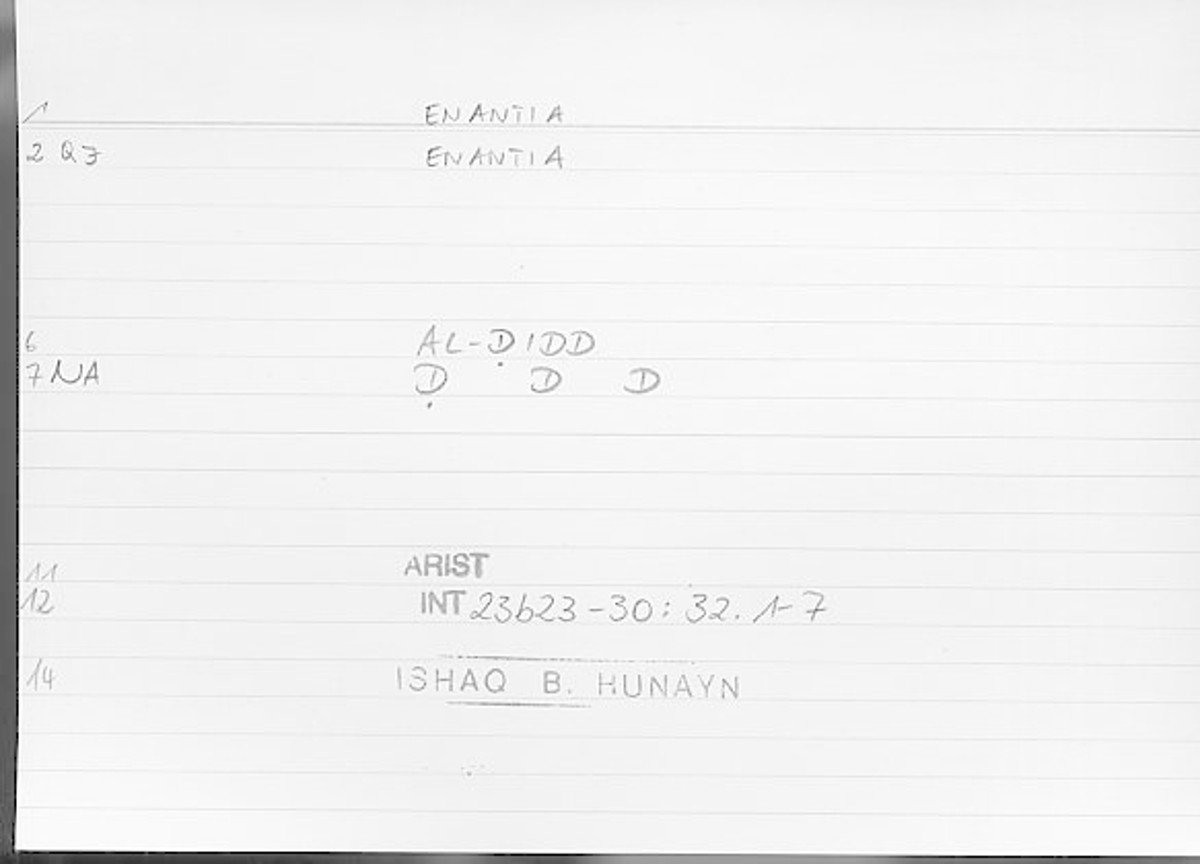 1 ENANTIA
2 QZ ENANTIA
6 AL-ḌIDD
7 NA Ḍ D D
11 ARIST
12 INT 23b23-30: 32.1-7
14 ISHAQ B. HUNAYN